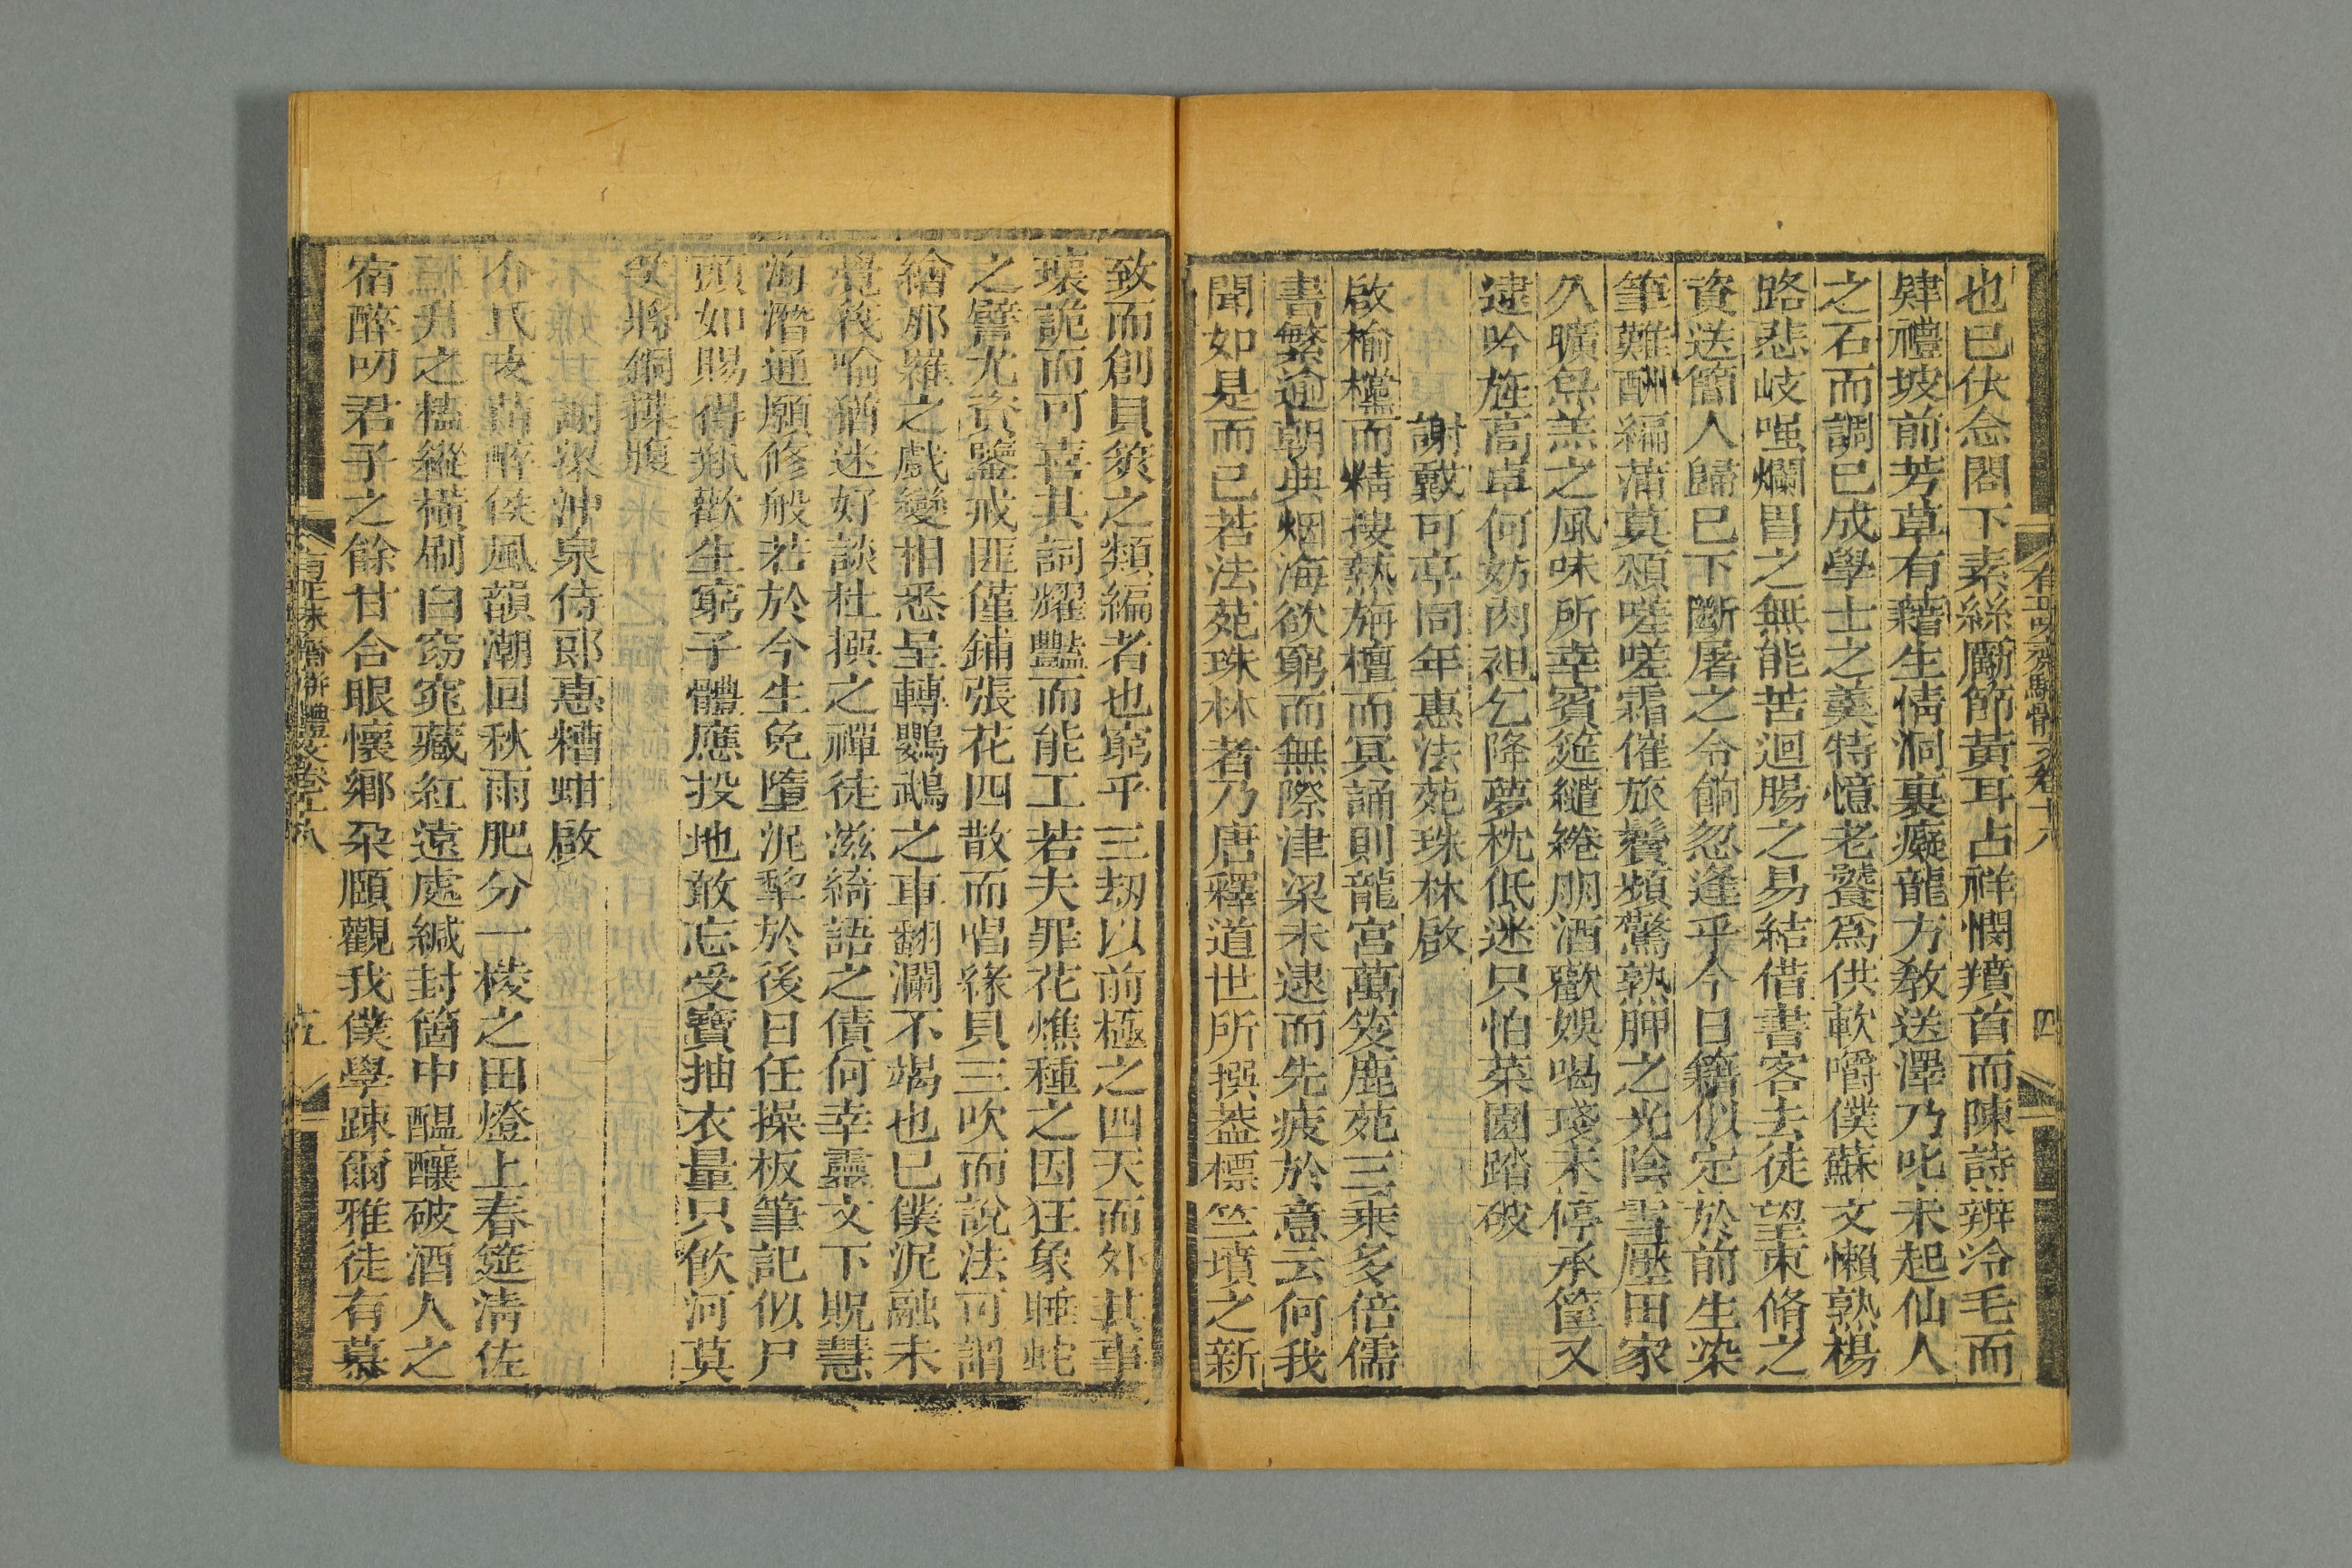 也已伏念閤下素絲勵節黃耳占祥憫羵首而陳詩辨泠毛而
肄禮坡前芳草有藉生情洞裏癡龍方敎送澤乃叱未起仙人
之石而調已成學士之羹特憶老饕爲供軟嚼僕蘇文懶熟楊
路悲岐嗤爛胃之無能苦迴腸之易結借書客去徒望束脩之
資送簡人歸已下斷屠之令餉忽逢乎今日籍似定於前生染
筆難酬編蒲莫頌嗟嗟霜催旅鬢頻驚熟胛之光陰雪壓田家
久曠炰羔之風味所幸賓筵繾綣朋酒歡娛喝琖未停承筐又
逮吟旌高卓何妨肉袒乞降夢枕低迷只怕菜園踏破
謝戴可亭同年惠法苑珠林啟
啟榆欓而精接熱旃檀而冥誦則龍宮萬笈鹿苑三乘多倍儒
書繁逾朝典烟海欲窮而無際津梁未逮而先疲於意云何我
聞如是而已若法苑珠林者乃唐釋道世所撰葢標竺墳之新
致而創貝筴之類編者也窮乎三刼以前極之四天而外其事
瓌詭而可喜其詞耀豔而能工若夫罪花燋種之因狂象睡蛇
之譬尤資鑒戒匪僅鋪張花四散而唱緣貝三吹而說法可謂
繪那羅之戲變相悉呈轉鸚鵡之車翻瀾不竭也已僕泥融未
覺筏喻猶迷好談杜撰之禪徒滋綺語之債何幸靈文下貺慧
海潛通願修般若於今生免墮泥犂於後日任操板筆記似尸
頭如賜得瓾歡生窮子體應投地敢忘受寶抽衣量只飮河莫
笑將銅鍱腹
謝秦沖泉侍郎惠糟蚶啟
介丘夜菑醉侯風韻潮回秋雨肥分一棱之田燈上春筵淸佐
恆升之榼縱橫刷白窈窕藏紅遠處緘封箇中醞釀破酒人之
宿醉叨君子之餘甘合眼懷鄉朶頤觀我僕學踈爾雅徒有慕
有正味齋駢體文卷十八
四
有正味齋駢體文卷十八
五